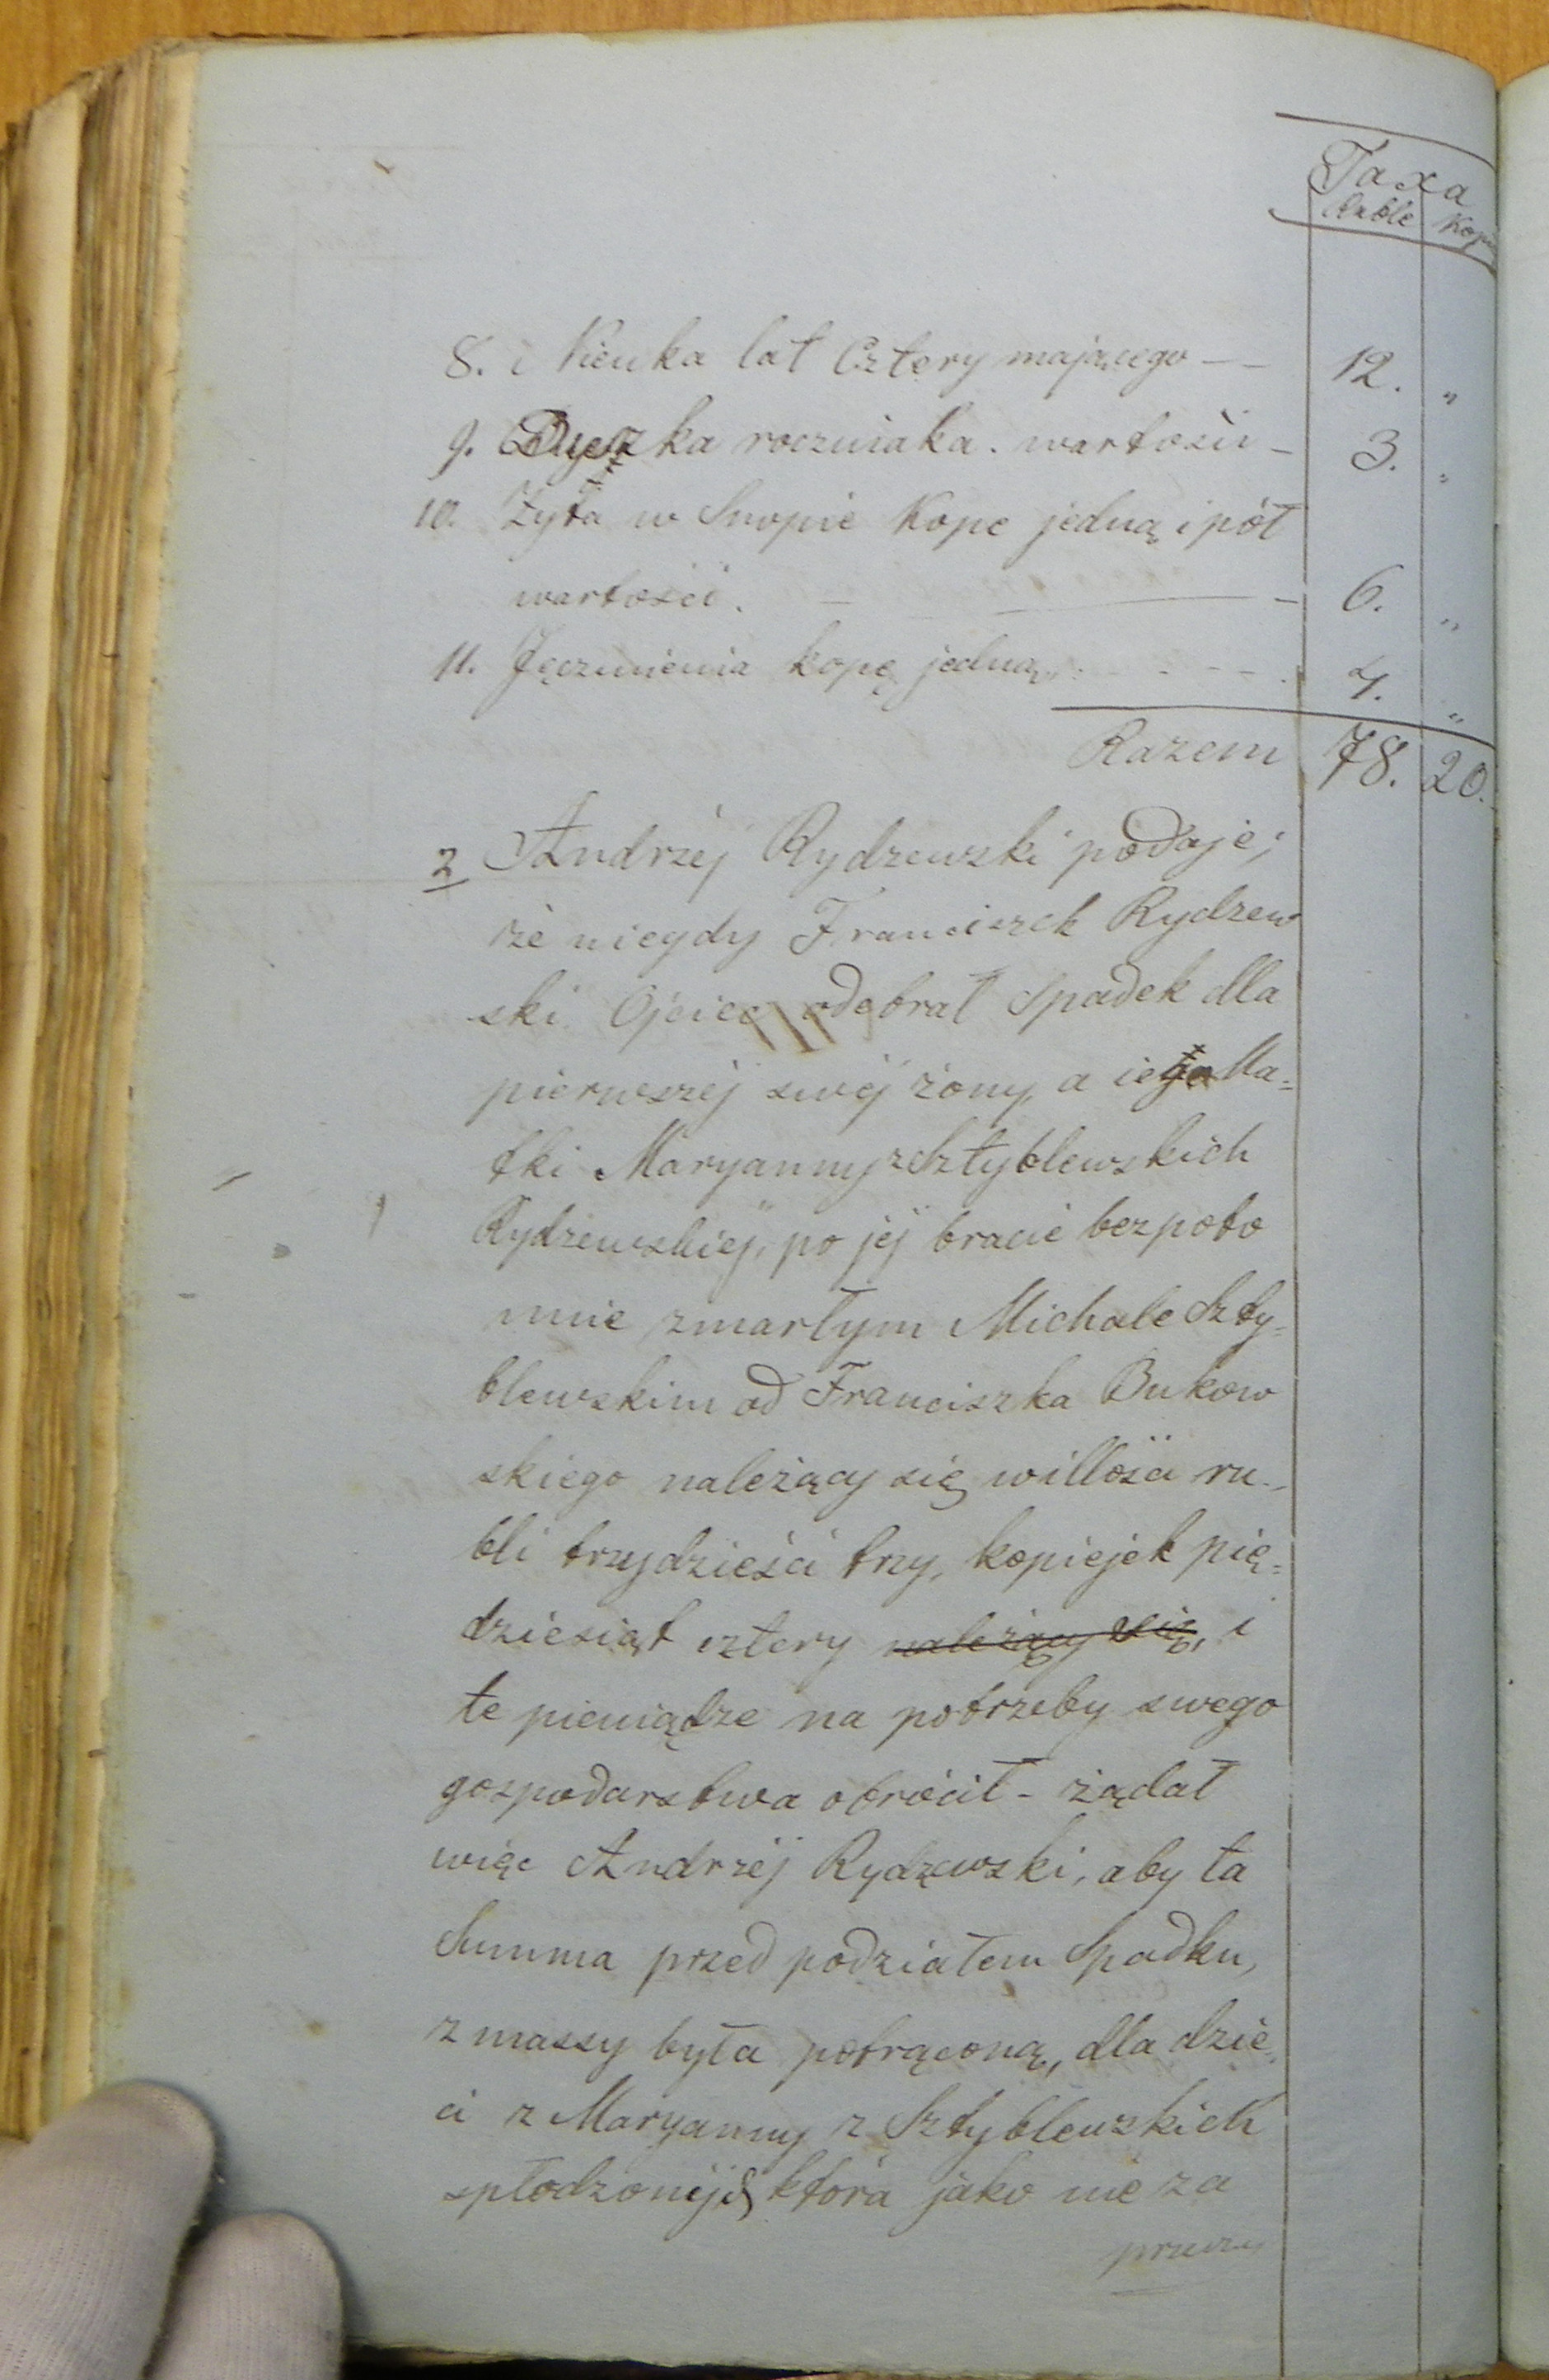 Taxa
Ruble Kop
8. i lat cztery mającego - - 12. "
9. Byczka roczniaka. wartości - 3. "
10. Żyta w Snopie Kope jedną i pół
wartości. - - 6. "
11. Jęczmienia kopę jedną. - - - - 4. "
Razem 78. 20.
2 Andrzéj Rydzewski podaje,
że niegdy Franciszek Rydzew
ski Ojciec odebrał Spadek dla
pierwszéj swéj żony, a iego Ma=
tki Maryanny z Sztyblewskich
Rydzewskiéj, po jéj bracie bezpoto
mnie zmarłym Michale Szty=
blewskim od Franciszka Bukow
skiego należący się w illości ru-
bli trzydzieści trzy, kopiejek pię=
dziesiąt cztery należący się, i
te pieniądze na potrzeby swego
gospodarstwa obrócił - żądał
więc Andrzéj Rydzewski, aby ta
Summa przed podziałem Spadku,
z massy była potrąconą, dla dzie
ci z Maryanny z Sztyblewskich
spłodzonych która jako nie za